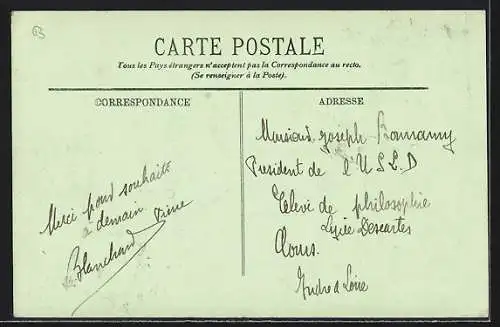 63
CARTE POSTALE
Tous les Pays étrangers n'acceptent pas la Correspondance au recto.
(Se renseigner à la Poste).
CORRESPONDANCE
ADRESSE
Merci pour souhaits
à demain
Blanchard
Monsieur Joseph Bonnamy
President de l'U S L D
Elève de philosophie
Lycée Descartes
Tours.
Indre et Loire